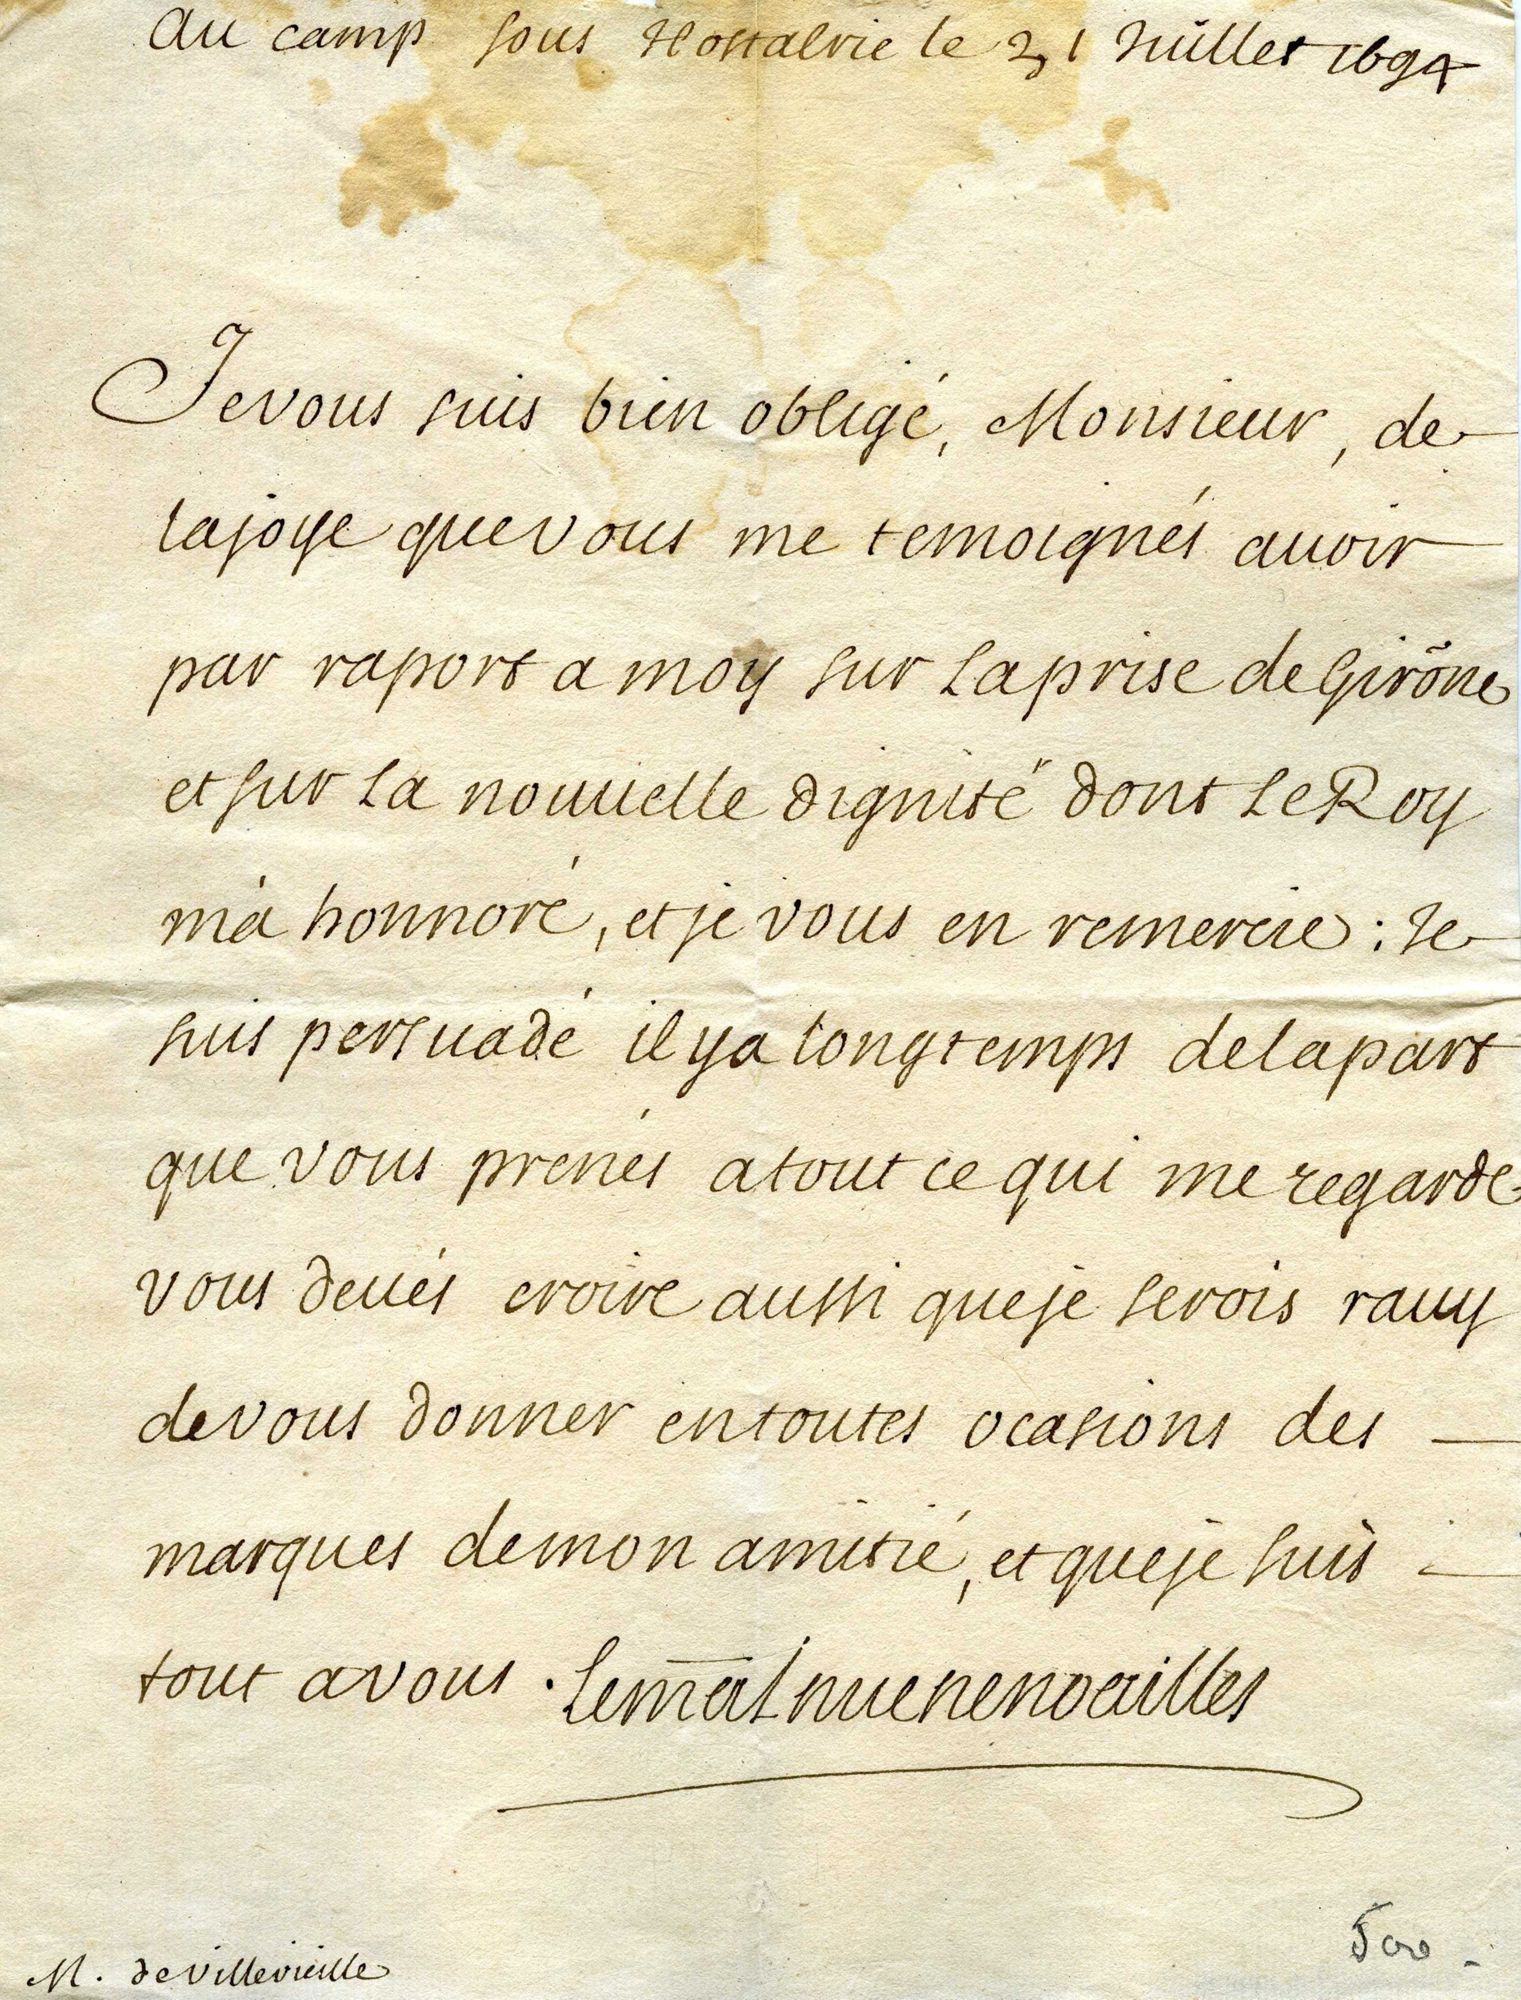 Au camp sous Hostalric le 21 Juillet 1694
Je vous suis bien obligé, Monsieur, de
la joye que vous me temoignés auoir
par raport a moy sur la prise de Girône
et sur la nouuelle dignité dont Le Roy
m'a honnoré, et je vous en remercie : Je
suis persuadé il y a longtemps de la part
que vous prenés a tout ce qui me regarde
vous deués croire aussi que je serois rauy
de vous donner en toutes ocasions des
marques de mon amitié, et que je suis
tout a vous . Le mal duc de noailles
M. de Villevieille